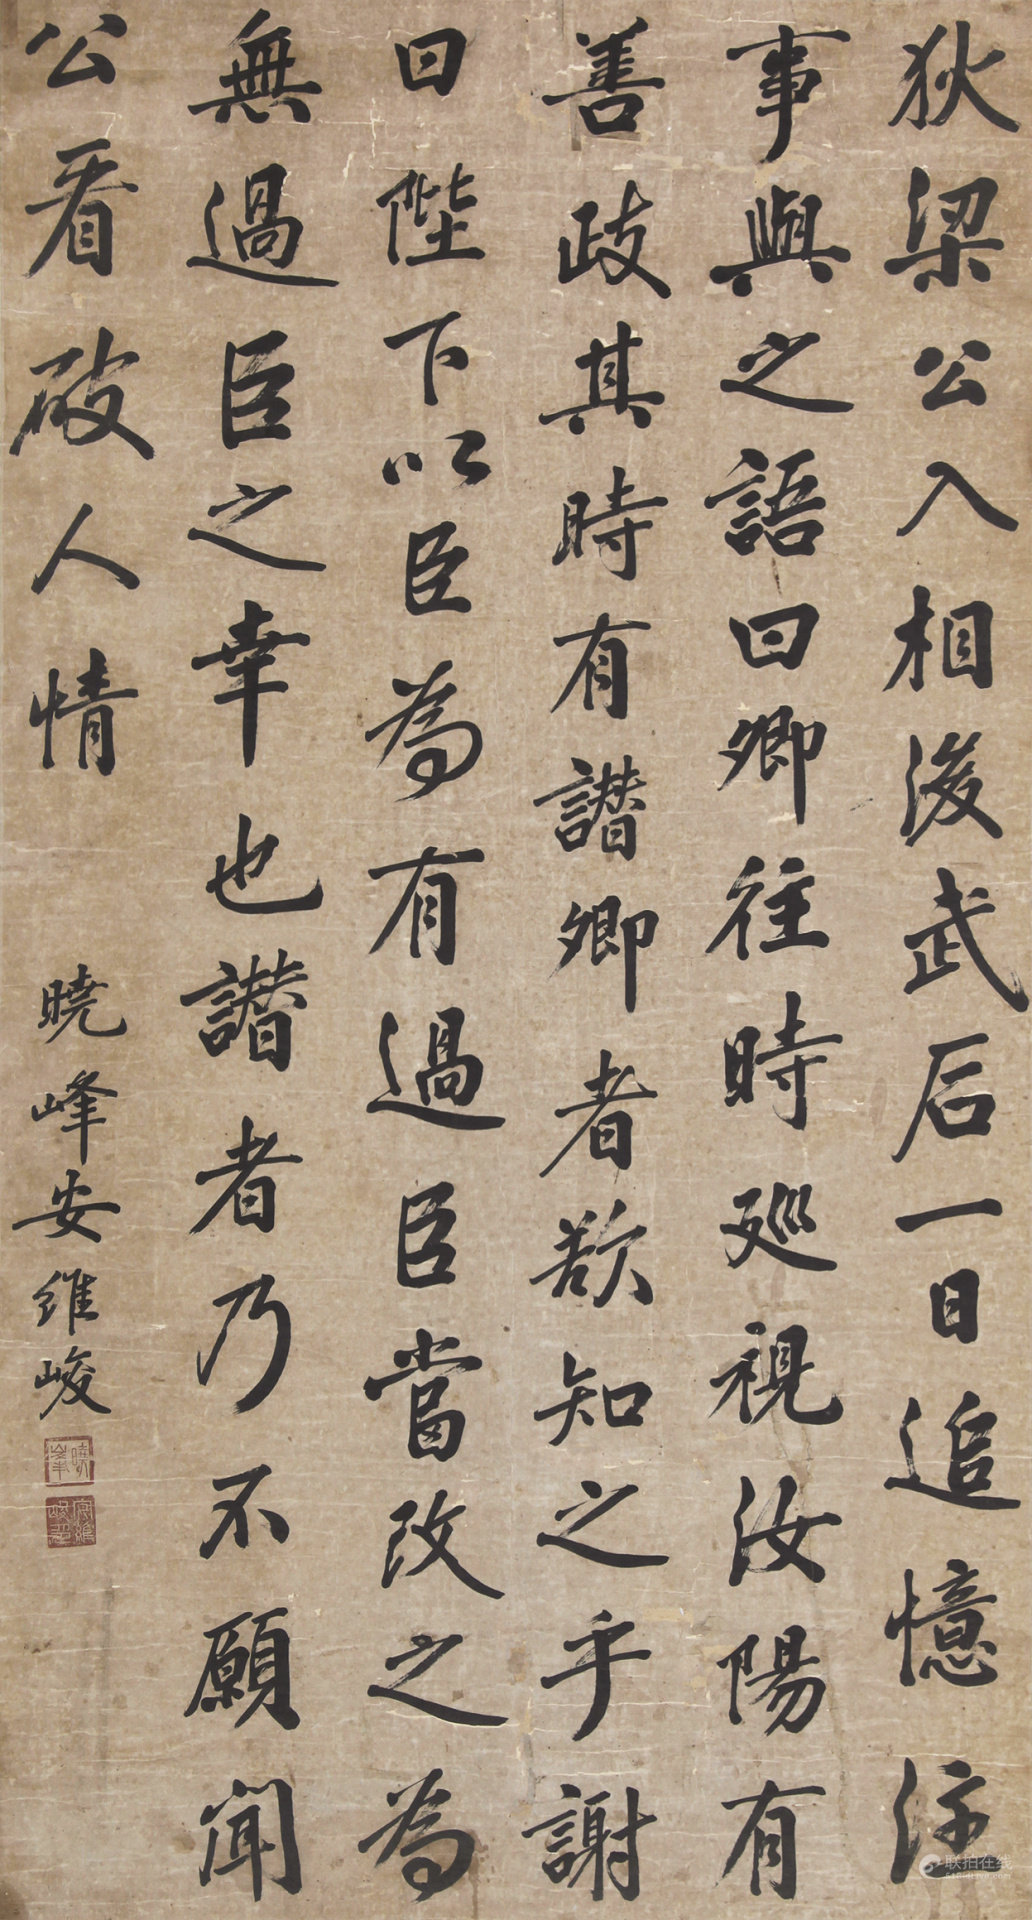 狄梁公入相後武后一日追憶往
事與之語曰卿往時廵視汝陽有
善政其時有譖卿者欲知之乎謝
曰陛下以臣為有過臣當改之為
無過臣之幸也譖者乃不願聞
公看破人情
曉峰安維峻
曉峯
安維峻印
联拍在线